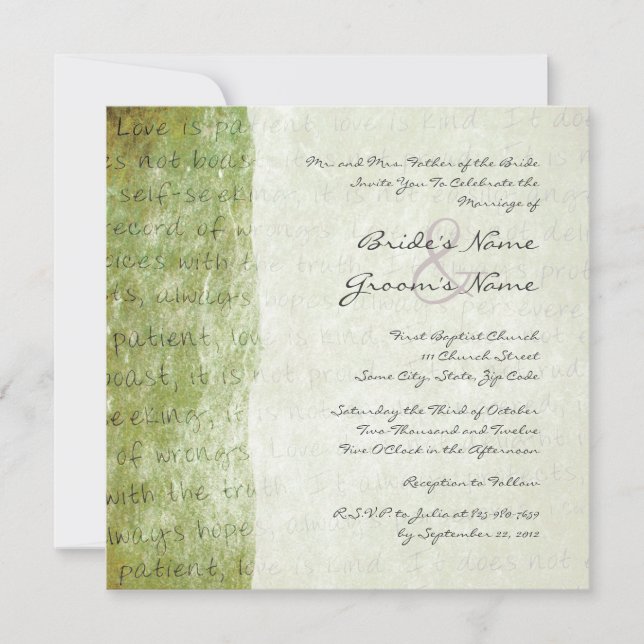 Love is patient, love is kind. It does
es not boast, it
self-seeking, it
record of wrongs
oices with the truth
ts, always hopes, always perseveres
patient, love is kind.
boast, it is not
eeking, it is
of wrongs. Love
with the truth. It always
always hopes, always
patient, love is kind. It does not e
Mr. and Mrs. Father of the Bride
Invite You To Celebrate the
Marriage of
Bride's Name
&
Groom's Name
First Baptist Church
111 Church Street
Some City, State, Zip Code
Saturday the Third of October
Two-Thousand and Twelve
Five O'Clock in the Afternoon
Reception to Follow
R.S.V.P. to Julia at 825-980-7659
by September 22, 2012